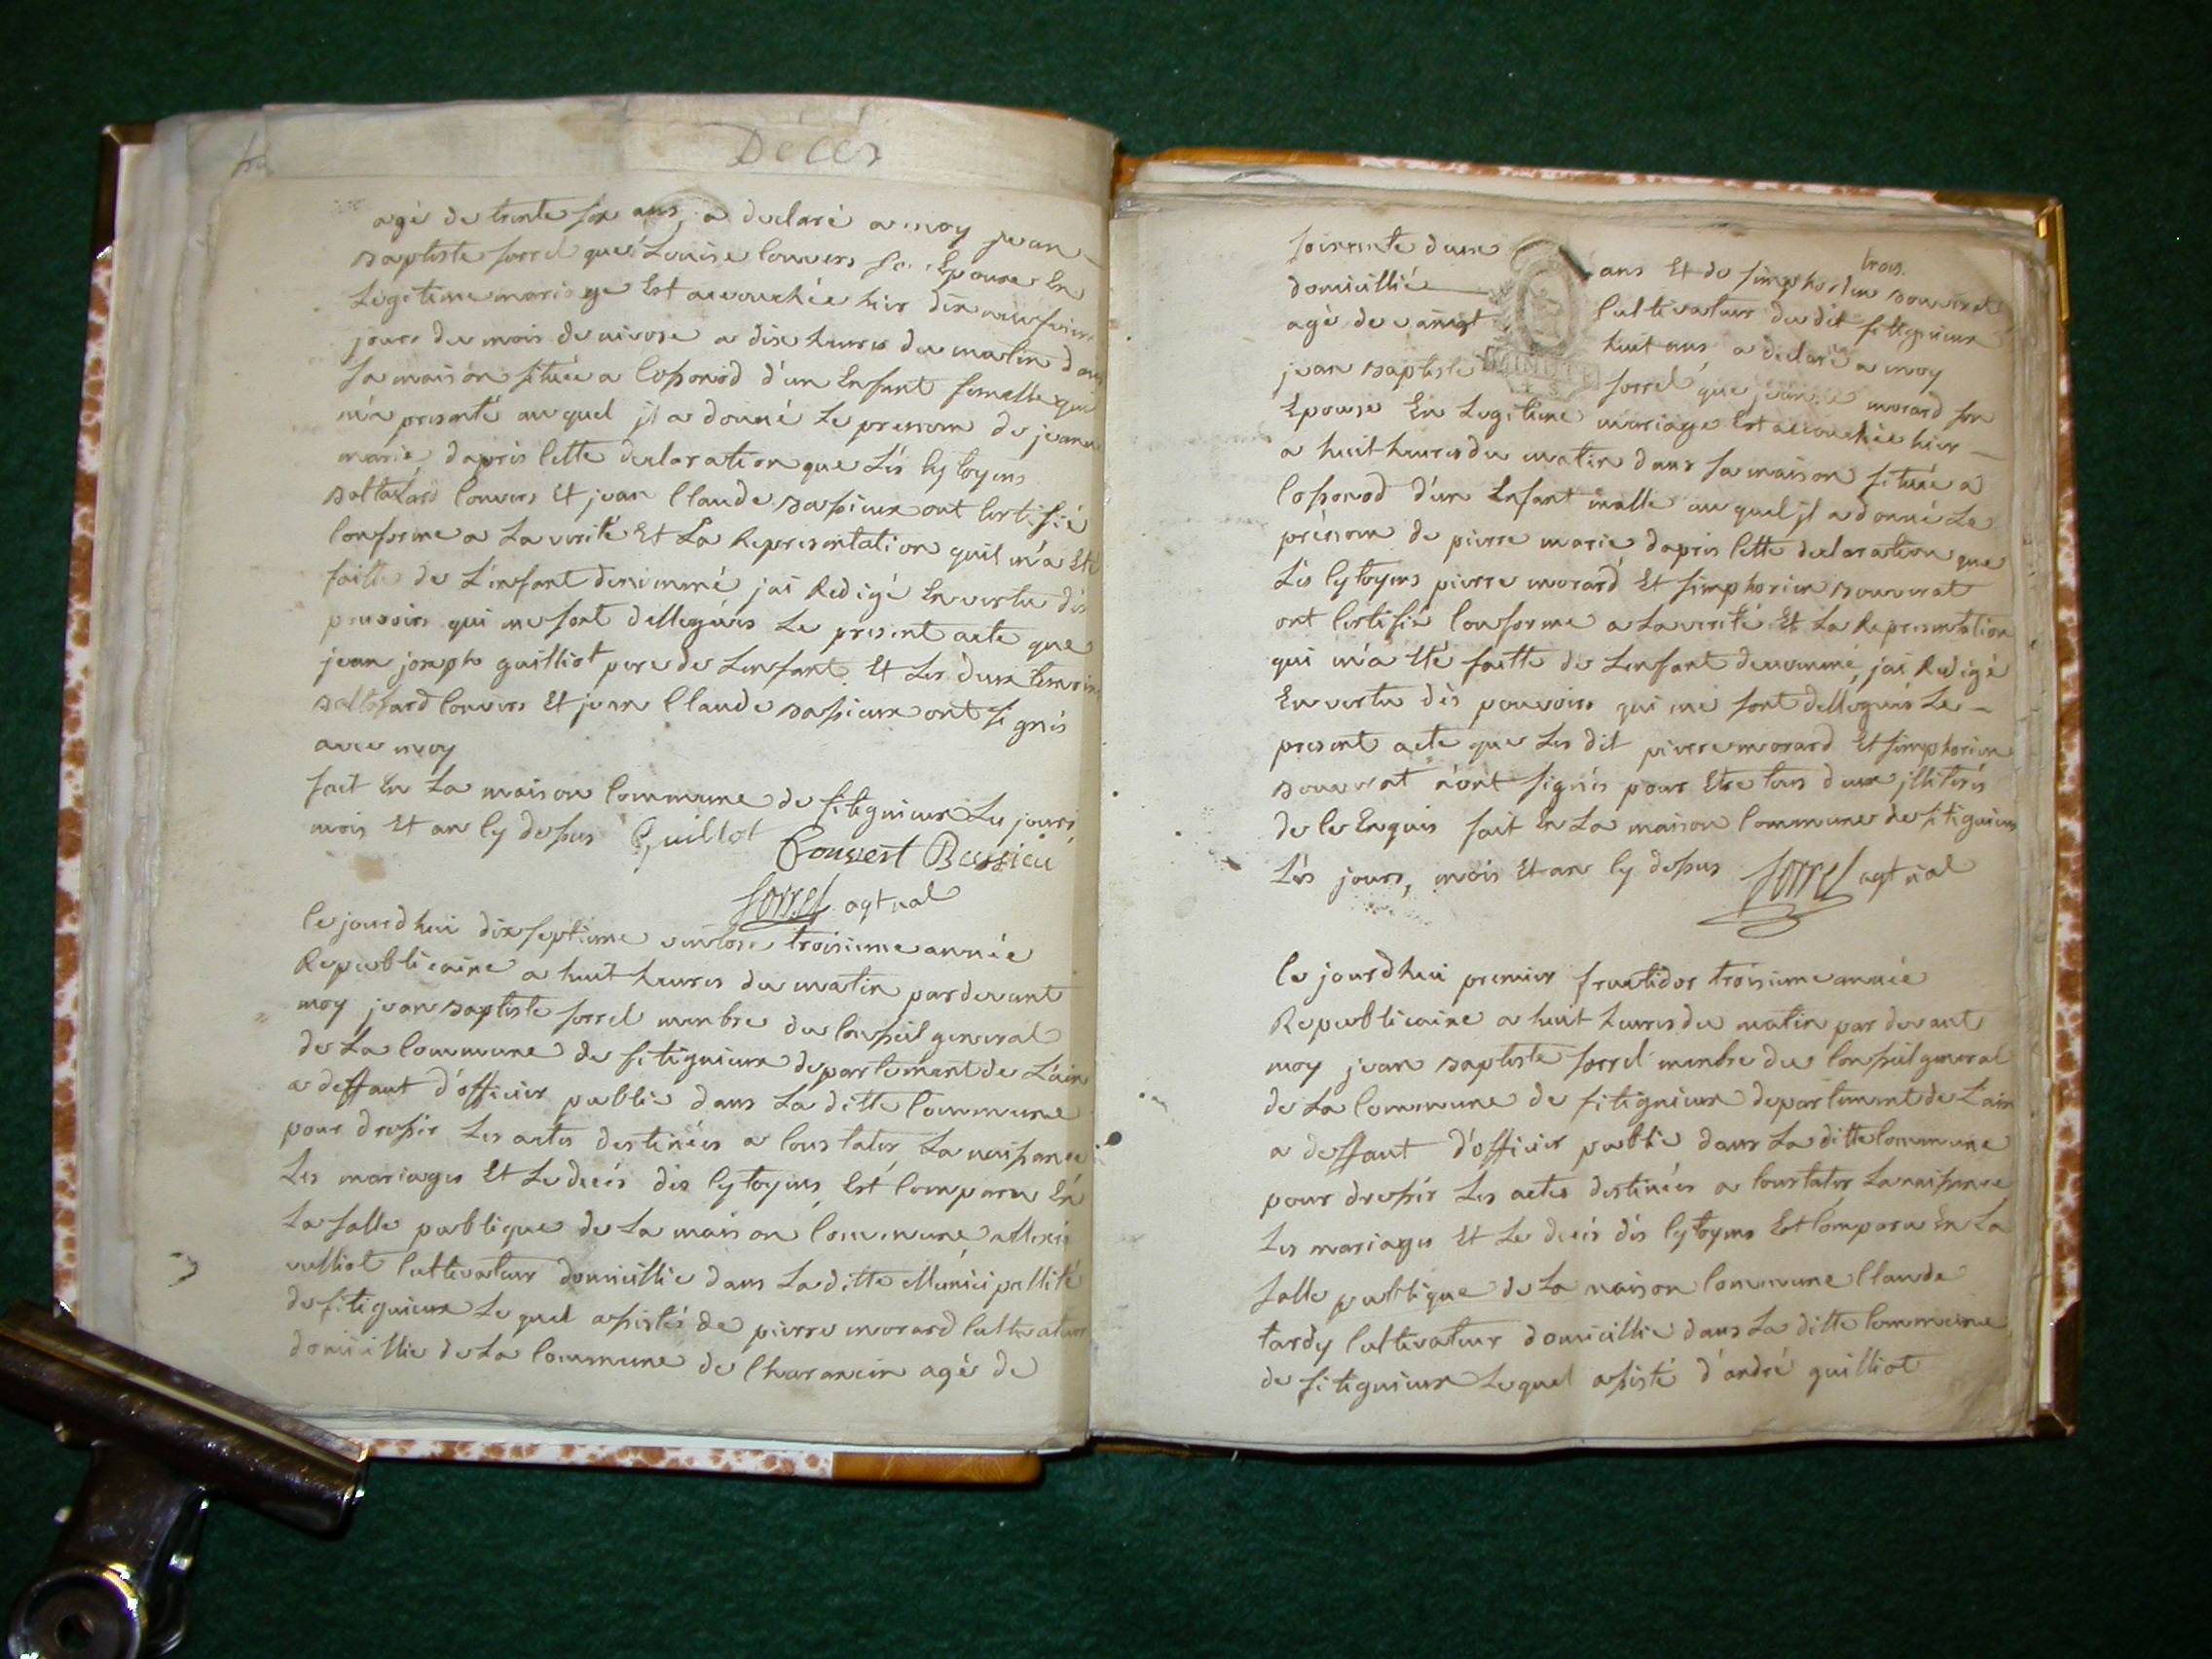 Décés
agé de trente six ans, a declaré a moy jean
baptiste sorrel que Louise Convers son Epouse En
Legitime mariage Est accouchée hier dix
jours du mois de nivose a dix heures du matin dans
sa maison située a Cossonod d'un Enfant femelle qui
m'a presenté auquel jl a donné Le prenom de jeanne
marie, dapris Cette declaration que Lés Cytoyens
baltasard Convers Et jean Claude bassieux ont Certifié
Conforme a La verité Et La Representation quil m'a Eté
faitte de L'enfant denommé jai Redigé En vertu dés
pouvoirs qui me sont dellegués Le present acte que
jean joseph guilliot pere de Lenfant Et Les deux temoins
baltasard Convers Et jean Claude bassieux ont signés
avec moy
fait En La maison Commune de fitignieux Les jours
mois Et an Cy dessus Guillot Convert Bassieu
sorrel agt nal
Ce jourd hui dixseptieme ventose troisieme année
Republicaine a huit heures du matin pardevant
moy jean baptiste sorrel membre du Conseil general
de La Commune de fitignieux departement de L'ain
a deffaut d'officier public dans La ditte Commune
pour dressér Les actes destinées a Constater La naissance
Les mariages Et Le decés dés Cytoyens Est Comparu En
La salle publique de La maison Commune
vulliot Cultivateur domicillié dans La ditte Municipallité
de fitignieux Le quel assisté de pierre morard Cultivateur
domicillié de La Commune de Charancin agé de
soixante deux ans Et de simphorien bouverat
trois
domicillié Cultivateur du dit fitignieux
agé de vaingt huit ans a declaré a moy
jean baptiste sorrel que morard son
Epouse En Legitime mariage Est accouchée hier
a huit heures du matin dans sa maison située a
Cossonod d'un Enfant malle auquel jl a donné Le
prénom de pierre marie dapris Cette declaration que
Lés Cytoyens pierre morard Et simphorien bouverat
ont Certifié Conforme a La verité Et La Representation
qui m'a Eté faitte de Lenfant denommé, jai Redigé
En vertu dés pouvoirs qui me sont dellegués Le
present acte que Les dit pierre morard Et simphorien
bouverat n'ont signés pour Etre tous deux jlliterés
de Ce Enquis fait En La maison Commune de fitignieux
Lés jours, mois Et an Cy dessus sorrel agt nal
Ce jourd hui premier fructidor troisieme année
Republicaine a huit heures du matin par devant
moy jean baptiste sorrel membre du Conseil general
de La Commune de fitignieux departement de L'ain
a deffaut d'officier public dans La ditte Commune
pour dressér Les actes destinées a Constater La naissance
Les mariages Et Le decés dés Cytoyens Est Comparu En La
salle publique de La maison Commune Claude
tardy Cultivateur domicillié dans La ditte Commune
de fitignieux Lequel assisté d'andré guilliot